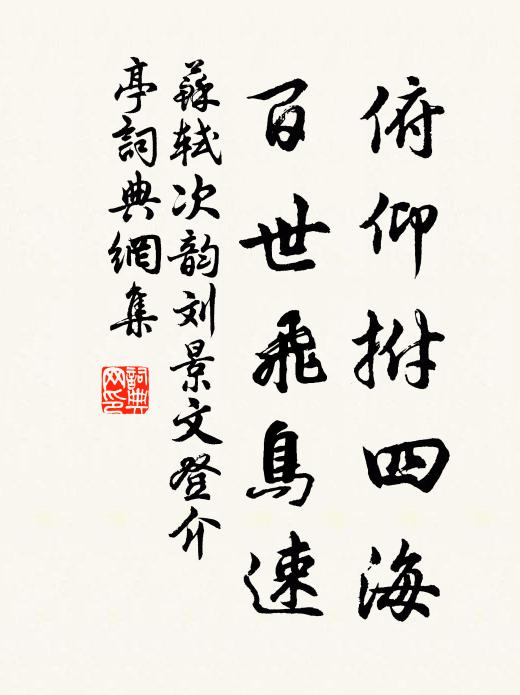 俯仰拊四海
百世飛鳥速
蘇軾次韵刘景文登介
亭詞典網集
詞典
网印